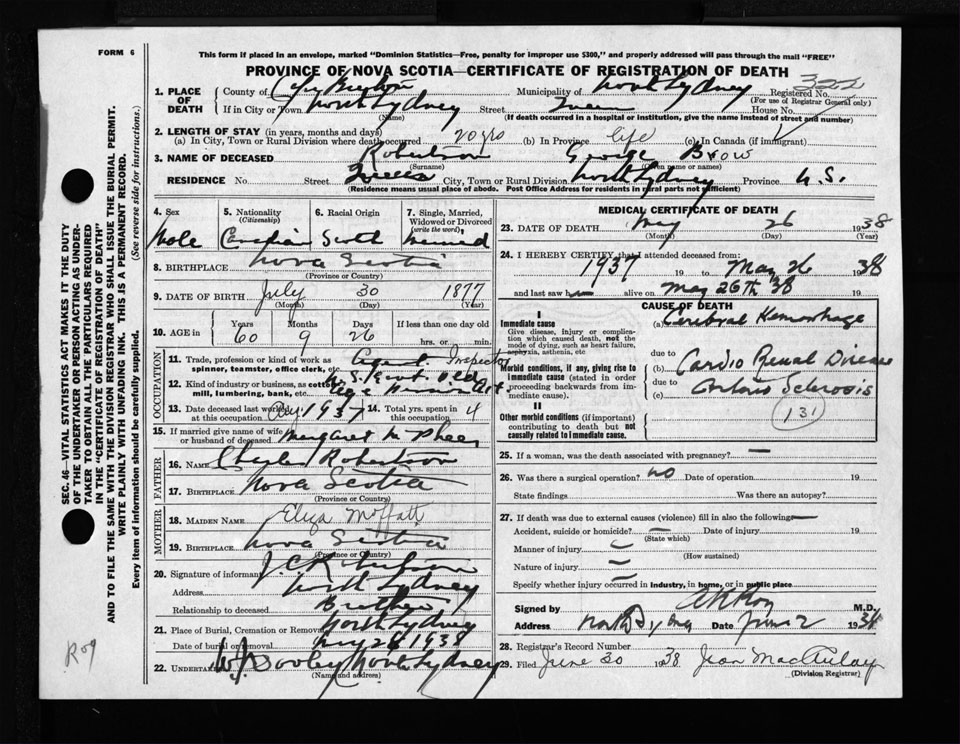 FORM 6
This form if placed in an envelope, marked "Dominion Statistics—Free, penalty for improper use $300," and properly addressed will pass through the mail "FREE"
PROVINCE OF NOVA SCOTIA—CERTIFICATE OF REGISTRATION OF DEATH
1. PLACE OF DEATH County of Cape Breton Municipality of North Sydney Registered No.
(For use of Registrar General only)
If in City or Town North Sydney Street Queen House No.
(Name) (If death occurred in a hospital or institution, give the name instead of street and number)
2. LENGTH OF STAY (in years, months and days)
(a) In City, Town or Rural Division where death occurred 20 yrs (b) In Province life (c) In Canada (if immigrant)
3. NAME OF DECEASED Robertson George
(Surname) (Given name or names)
RESIDENCE No. Street Queen City, Town or Rural Division North Sydney Province N.S.
(Residence means usual place of abode. Post Office Address for residents in rural parts not sufficient)
4. Sex Male
5. Nationality (Citizenship) Canadian
6. Racial Origin Scotch
7. Single, Married, Widowed or Divorced (write the word) Married
8. BIRTHPLACE Nova Scotia
(Province or Country)
9. DATE OF BIRTH July 30 1877
(Month) (Day) (Year)
10. AGE in Years Months Days If less than one day old
60 9 26 hrs. or min.
OCCUPATION
11. Trade, profession or kind of work as spinner, teamster, office clerk, etc. Agent Inspector
12. Kind of industry or business, as cotton mill, lumbering, bank, etc. N.S. Govt. Old Age Pension Act
13. Date deceased last worked at this occupation 1937 14. Total yrs. spent in 4
15. If married give name of wife or husband of deceased Margaret McPhee
FATHER
16. NAME Charles Robertson
17. BIRTHPLACE Nova Scotia
(Province or Country)
MOTHER
18. MAIDEN NAME Eliza Moffatt
19. BIRTHPLACE Nova Scotia
(Province or Country)
20. Signature of informant J.C. Robertson
Address North Sydney
Relationship to deceased Brother
21. Place of Burial, Cremation or Removal North Sydney
Date of burial or removal May 1938
22. UNDERTAKER W.J. Dooley North Sydney
(Name and address)
MEDICAL CERTIFICATE OF DEATH
23. DATE OF DEATH May 26 1938
(Month) (Day) (Year)
24. I HEREBY CERTIFY that I attended deceased from:
1937 19 to May 26 1938
and last saw h alive on May 26th 38 19
CAUSE OF DEATH
I
Immediate cause
Give disease, injury or complication which caused death, not the mode of dying, such as heart failure, asphyxia, asthenia, etc
(a) Cerebral Hemorhage
due to
Morbid conditions, if any, giving rise to immediate cause (stated in order proceeding backwards from immediate cause).
(b) Cardio Renal Disease
due to
(c) Arterio Sclerosis
131
II
Other morbid conditions (if important) contributing to death but not causally related to immediate cause.
25. If a woman, was the death associated with pregnancy? —
26. Was there a surgical operation? NO Date of operation 19
State findings Was there an autopsy?
27. If death was due to external causes (violence) fill in also the following:—
Accident, suicide or homicide? Date of injury 19
(State which)
Manner of injury
(How sustained)
Nature of injury
Specify whether injury occurred in industry, in home, or in public place
Signed by M.D.
Address North Sydney Date June 2 1938
28. Registrar's Record Number
29. Filed June 30 1938 Jean MacAulay
(Division Registrar)
SEC. 46—VITAL STATISTICS ACT MAKES IT THE DUTY
OF THE UNDERTAKER OR PERSON ACTING AS UNDERTAKER TO OBTAIN ALL THE PARTICULARS REQUIRED
IN THE "CERTIFICATE OF REGISTRATION OF DEATH"
AND TO FILE THE SAME WITH THE DIVISION REGISTRAR WHO SHALL ISSUE THE BURIAL PERMIT.
WRITE PLAINLY WITH UNFADING INK. THIS IS A PERMANENT RECORD.
Every item of information should be carefully supplied. (See reverse side for instructions.)